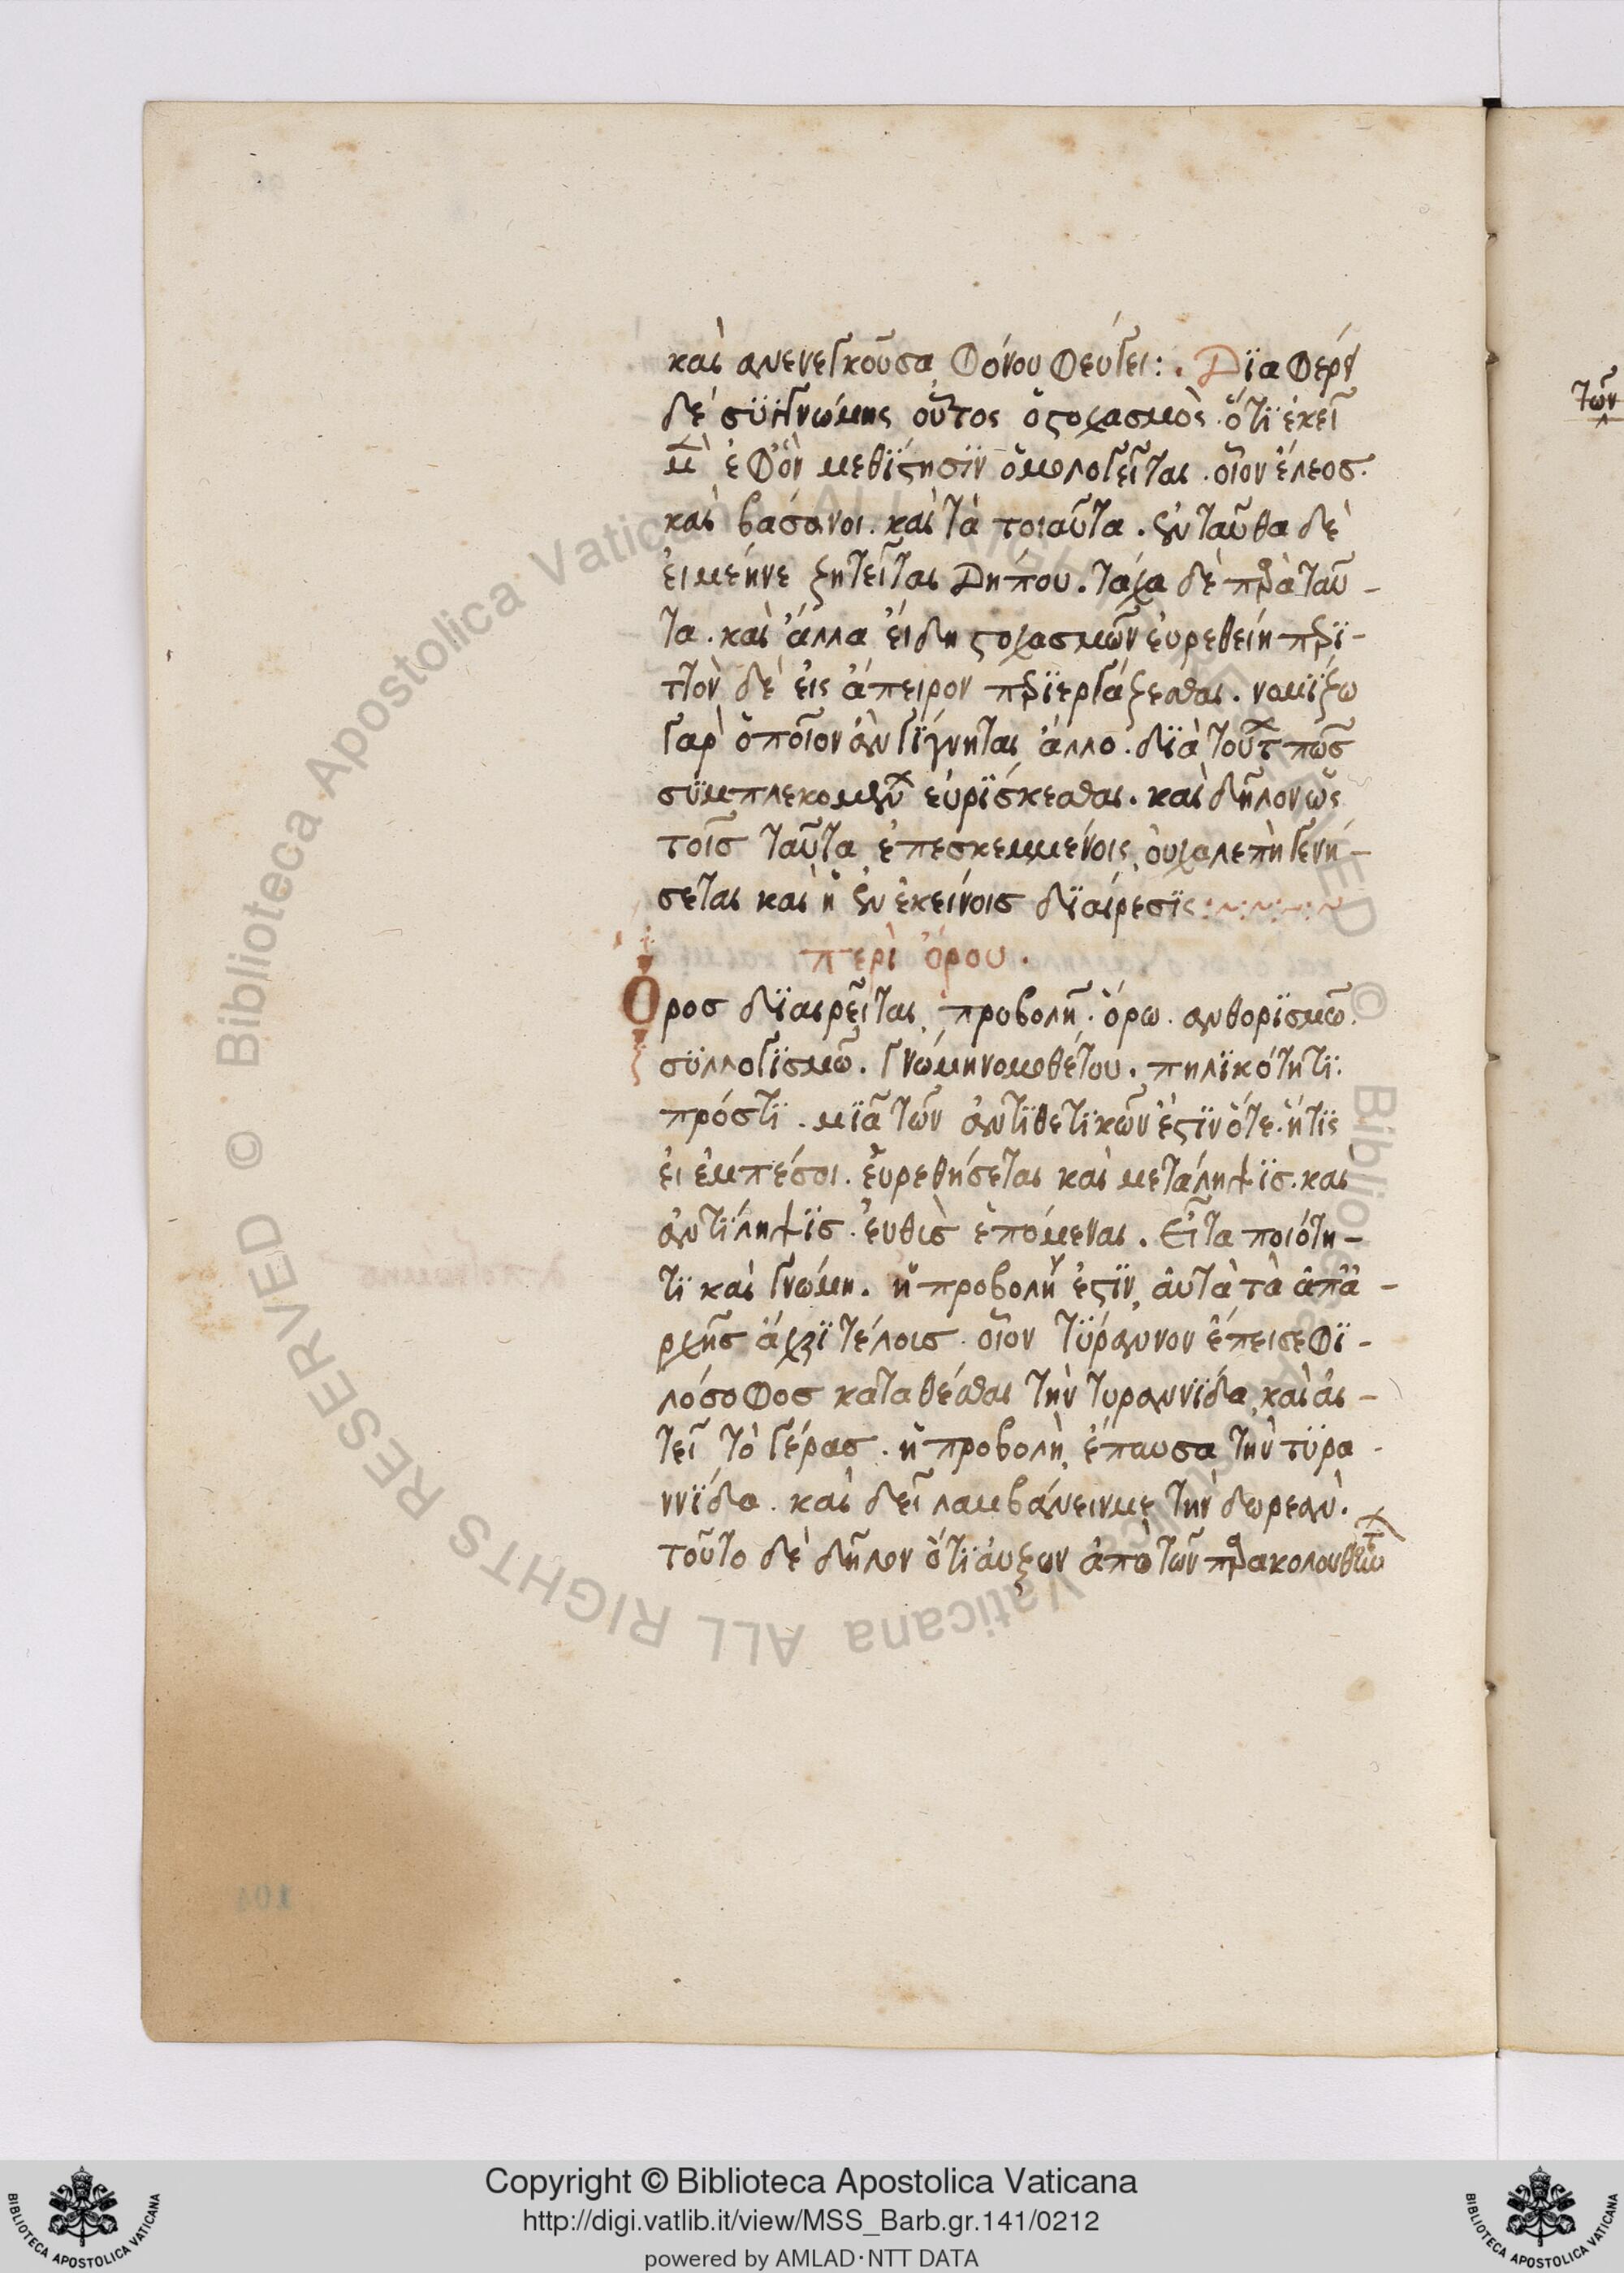 καὶ ἀνενεγκοῦσα, φόνου φεύγει:. Διαφέρει
δὲ συγγνώμης οὗτος ὁ στοχασμὸς· ὅτι ἐκεῖ
μὲν ἐφ' ὃν μεθίστησιν ὁμολογεῖται· οἷον ἔλεος·
καὶ βάσανοι. καὶ τὰ τοιαῦτα. ἐνταῦθα δὲ
εἰ μεήνε ζητεῖται δήπου. τάχα δὲ παρὰ ταῦ-
τα. καὶ ἄλλα εἴδη στοχασμῶν εὑρεθείη περϊ-
τὸν δὲ εἰς ἄπειρον περϊεργάζεσθαι. νομίζω
γὰρ ὁποῖον ἂν γίγνηται ἄλλο. διὰ τούτων πῶς
συμπλεκομένων εὑρίσκεσθαι. καὶ δῆλον ὡς
τοῖς ταῦτα ἐπεσκεμμένοις, οὐ χαλεπὴ γενή-
σεται καὶ ἡ ἐν ἐκείνοις διαίρεσις:~:~:~
περὶ ὅρου.
Ὅρος διαιρεῖται, προβολῇ. ὅρω. ἀνθορισμῶ.
συλλογισμῶ. γνώμη νομοθέτου. πηλικότητι.
πρός τι. μία τῶν ἀντιθετικῶν ἐστὶν ὅτε. ἥτις
εἰ ἐμπέσοι. εὑρεθήσεται καὶ μετάληψις. και
ἀντίληψις. εὐθὶς ἑπόμεναι. Εἶτα ποιότη-
τι καὶ γνώμη. ἡ προβολὴ ἐστὶν, αὐτὰ τὰ ἀπἀ-
ρχῆς ἄχρι τέλοις. οἷον τύραννον ἔπεισε φι-
λόσοφος καταθέσθαι τὴν τυραννίδα, καὶ αἰ-
τεῖ τὸ γέρας. ἡ προβολὴ, ἔπαυσα τὴν τυρα-
ννίδα. καὶ δεῖ λαμβάνειν με τὴν δωρεάν.
τοῦτο δὲ δῆλον ὅτι αὔξων ἀπὸ τῶν παρακολουθούντων
τῶν
Copyright © Biblioteca Apostolica Vaticana
http://digi.vatlib.it/view/MSS_Barb.gr.141/0212
powered by AMLAD·NTT DATA
BIBLIOTECA APOSTOLICA VATICANA
BIBLIOTECA APOSTOLICA VATICANA
© Biblioteca Apostolica Vaticana ALL RIGHTS RESERVED
© Biblioteca Apostolica Vaticana ALL RIGHTS RESERVED